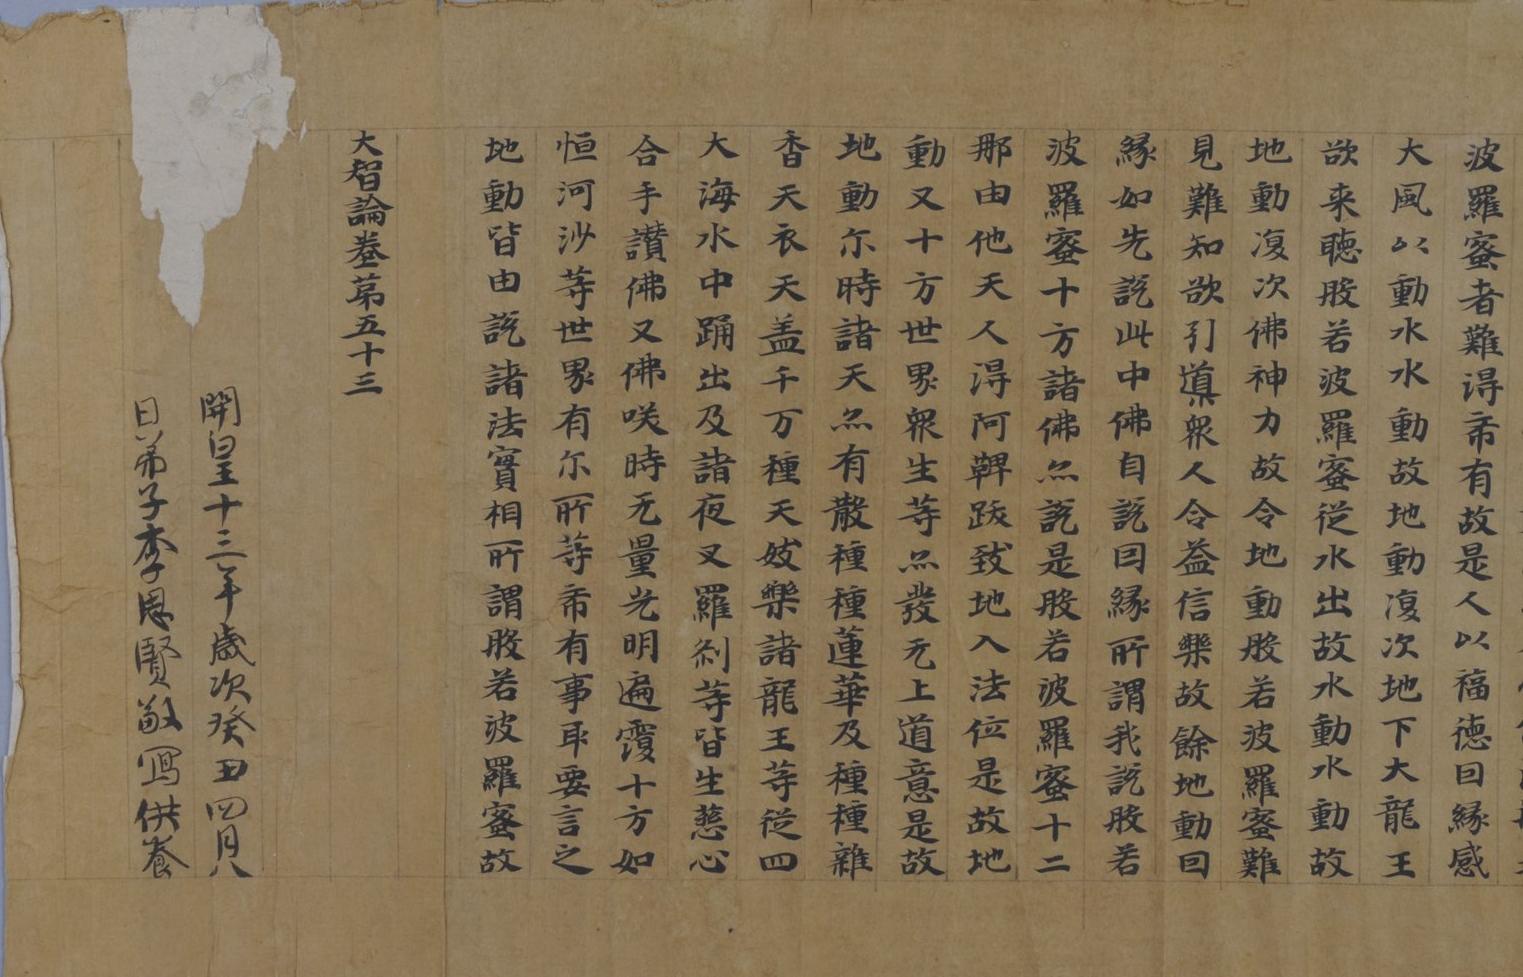 波羅蜜者難得希有故是人以福德回緣感
大風以動水水動故地動復次地下大龍王
欲来聽般若波羅蜜從水出故水動水動故
地動復次佛神力故令地動般若波羅蜜難
見難知欲引導衆人令益信樂故餘地動回
緣如先說此中佛自說回緣所謂我說般若
波羅蜜十方諸佛亦說是般若波羅蜜十二
那由他天人得阿鞞跋致地入法位是故地
動又十方世界衆生等亦發无上道意是故
地動尒時諸天亦有散種種蓮華及種種雜
香天衣天盖千万種天妓樂諸龍王等從四
大海水中踊出及諸夜叉羅剎等皆生慈心
合手讚佛又佛咲時无量光明遍覆十方如
恒河沙等世界有尒所等希有事耶要言之
地動皆由說諸法實相所謂般若波羅蜜故
大智論卷第五十三
開皇十三年歲次癸丑四月八
日弟子李思賢敬寫供養